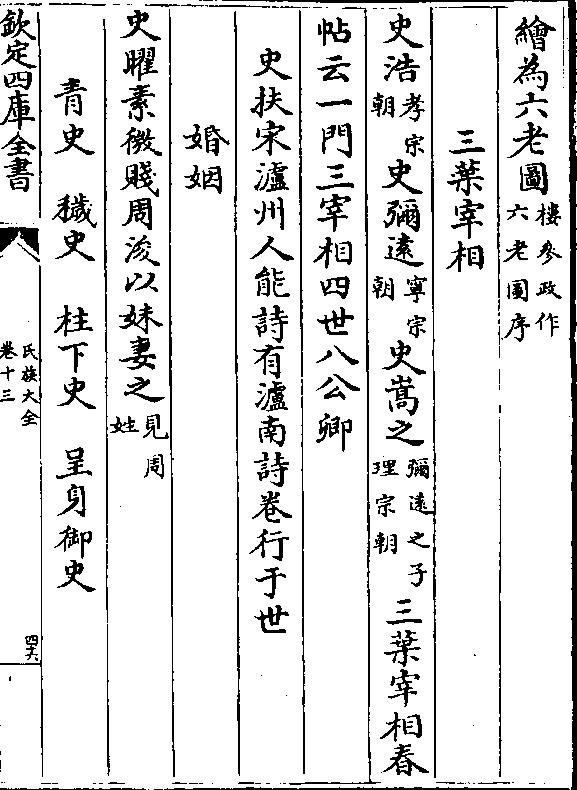 繪為六老圖樓參政作六老圖序
三葉宰相
史浩孝宗朝史彌遠寧宗朝史嵩之彌遠之子理宗朝三葉宰相春
帖云一門三宰相四世八公卿
史扶宋瀘州人能詩有瀘南詩卷行于世
婚姻
史曜素微賤周浚以妹妻之見周姓
青史 穢史 柱下史 呈身御史
欽定四庫全書
氏族大全
卷十三
四六